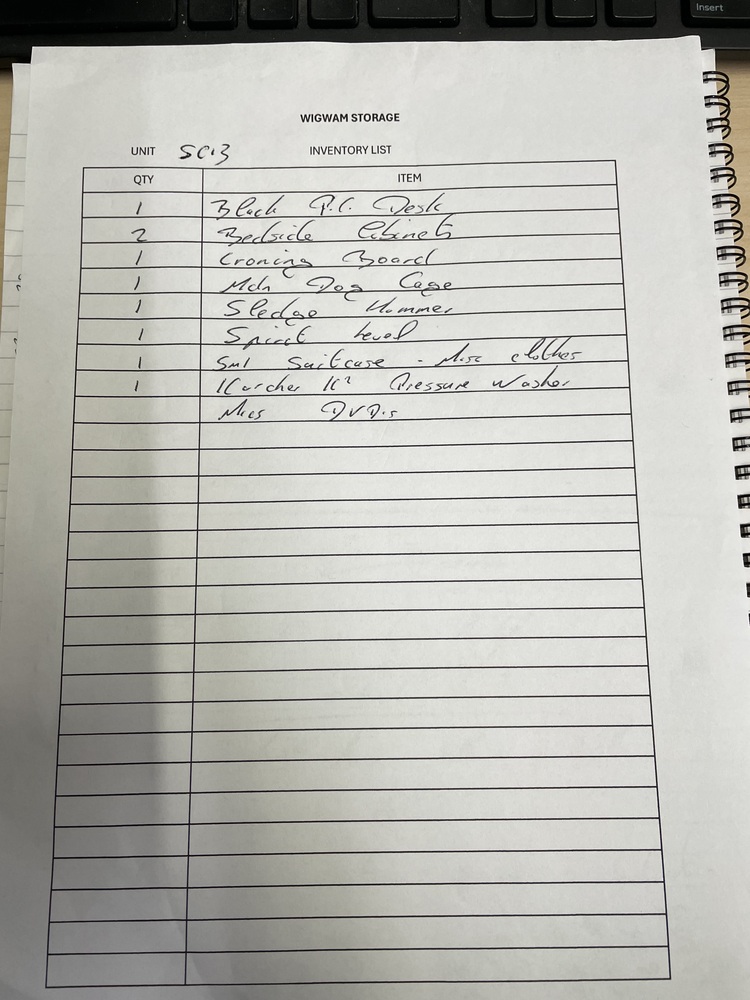 Insert
WIGWAM STORAGE
UNIT SC13 INVENTORY LIST
QTY ITEM
1 Black P.C. Desk
2 Bedside Cabinets
1 Ironing Board
1 Mdn Dog Cage
1 Sledge Hammer
1 Spirit Level
1 Sml Suitcase - Misc clothes
1 Karcher K2 Pressure Washer
Mics DVD's